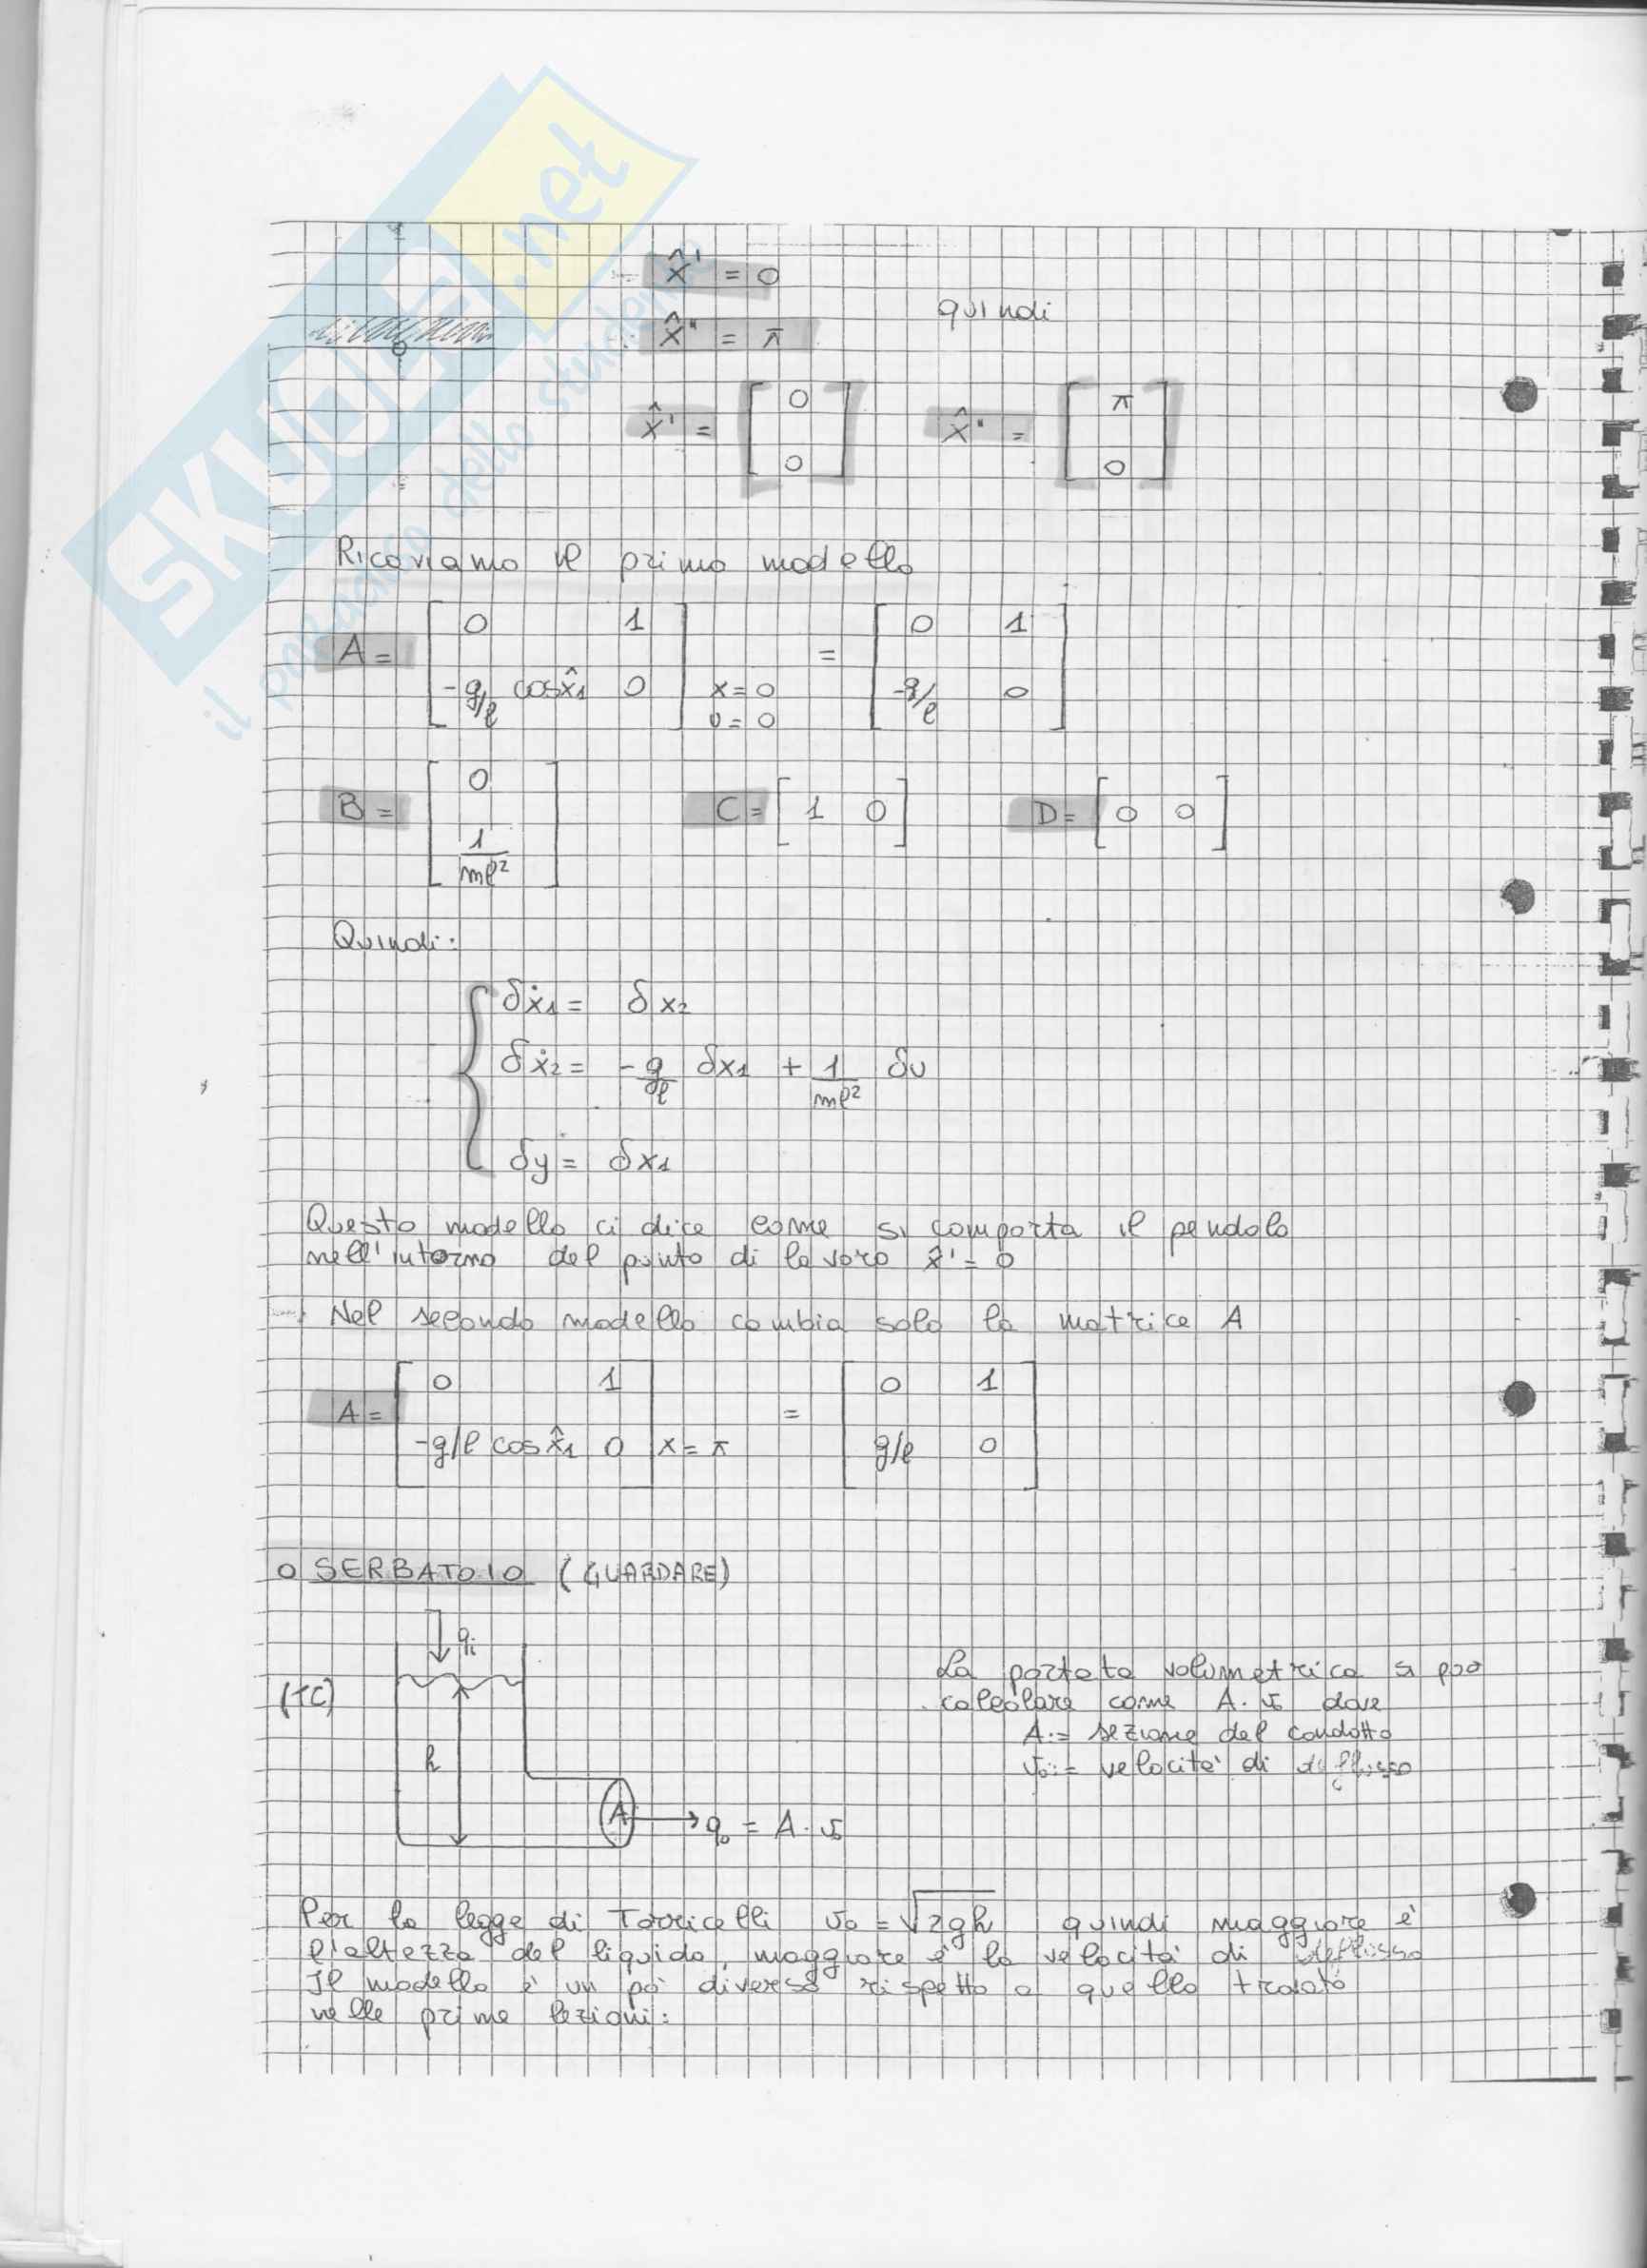 SKUOLA.net
il paradiso dello studente
x̂' = 0
quindi
x̂" = π
x̂' = [ 0 0 ] x̂" = [ π 0 ]
Ricaviamo il primo modello
A = [ 0 1 -g/l cos x̂1 0 ] x=0 u=0 = [ 0 1 -g/l 0 ]
B = [ 0 1/ml² ] C = [ 1 0 ] D = [ 0 0 ]
Quindi:
δẋ1 = δx2
δẋ2 = -g/l δx1 + 1/ml² δu
δy = δx1
Questo modello ci dice come si comporta il pendolo
nell'intorno del punto di lavoro x̂' = 0
→ Nel secondo modello cambia solo la matrice A
A = [ 0 1 -g/l cos x̂1 0 ] x=π = [ 0 1 g/l 0 ]
o SERBATOIO (GUARDARE)
qi
(TC)
h
A → qo = A · vo
La portata volumetrica si può
calcolare come A · vo dove
A := sezione del condotto
vo := velocità di deflusso
Per la legge di Torricelli vo = √2gh quindi maggiore è
l'altezza del liquido, maggiore è la velocità di deflusso
Il modello è un pò diverso rispetto a quello trovato
nelle prime lezioni: